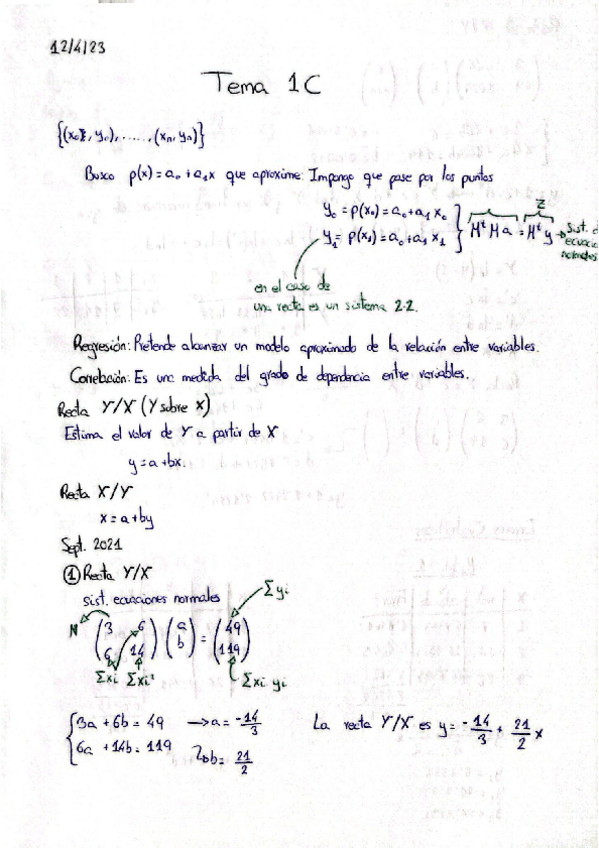 12/4/23
Tema 1C
{(x₀, y₀), ......, (xₙ, yₙ)}
Busco p(x) = a₀ + a₁x que aproxime: Impongo que pase por los puntos
y₀ = p(x₀) = a₀ + a₁ x₀
y₁ = p(x₁) = a₀ + a₁ x₁
Mᵗ M a = Mᵗ y
z
→ Sist. d
ecuacio
normales
en el caso de
una recta es un sistema 2·2.
Regresión: Pretende alcanzar un modelo aproximado de la relación entre variables.
Correlación: Es una medida del grado de dependencia entre variables.
Recta Y/X (Y sobre X)
Estima el valor de Y a partir de X
y = a + bx.
Recta X/Y
x = a + by
Sept. 2021
① Recta Y/X
sist. ecuaciones normales
Σyi
N (3 6) (a) = (49)
(6 14) (b) (119)
Σxi Σxi² Σxi yi
{3a + 6b = 49 → a = -14/3
6a + 14b = 119 → b = 21/2
La recta Y/X es y = -14/3 + 21/2 x